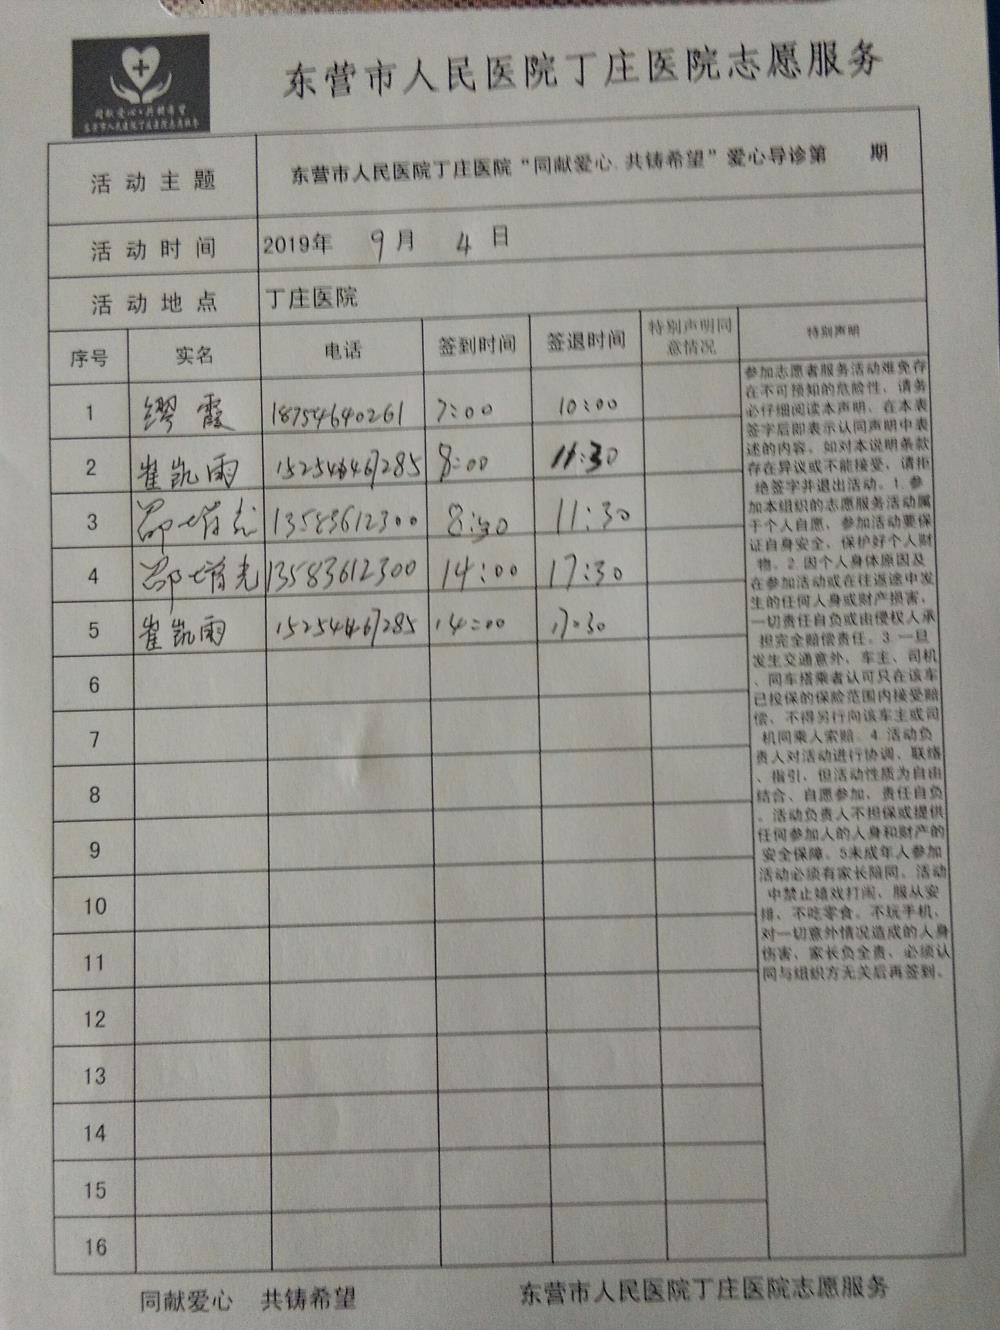 同献爱心·共铸希望
东营市人民医院丁庄医院志愿服务
东营市人民医院丁庄医院志愿服务
活动主题 东营市人民医院丁庄医院“同献爱心.共铸希望”爱心导诊第 期
活动时间 2019年 9月 4日
活动地点 丁庄医院
序号 实名 电话 签到时间 签退时间 特别声明同意情况 特别声明
1 缪霞 18754640261 7:00 10:00
2 崔凯雨 152546467285 8:00 11:30
3 13583612300 8:30 11:30
4 13583612300 14:00 17:30
5 崔凯雨 152546467285 14:00 17:30
6
7
8
9
10
11
12
13
14
15
16
参加志愿者服务活动难免存
在不可预知的危险性，请务
必仔细阅读本声明，在本表
签字后即表示认同声明中表
述的内容。如对本说明条款
存在异议或不能接受，请拒
绝签字并退出活动。1.参
加本组织的志愿服务活动属
于个人自愿，参加活动要保
证自身安全，保护好个人财
物。2.因个人身体原因及
在参加活动或在往返途中发
生的任何人身或财产损害，
一切责任自负或由侵权人承
担完全赔偿责任。3.一旦
发生交通意外，车主、司机
、同车搭乘者认可只在该车
已投保的保险范围内接受赔
偿，不得另行向该车主或司
机同乘人索赔。4.活动负
责人对活动进行协调、联络
、指引，但活动性质为自由
结合、自愿参加，责任自负
。活动负责人不担保或提供
任何参加人的人身和财产的
安全保障。5未成年人参加
活动必须有家长陪同。活动
中禁止嬉戏打闹，服从安
排，不吃零食，不玩手机，
对一切意外情况造成的人身
伤害，家长负全责，必须认
同与组织方无关后再签到。
同献爱心 共铸希望 东营市人民医院丁庄医院志愿服务